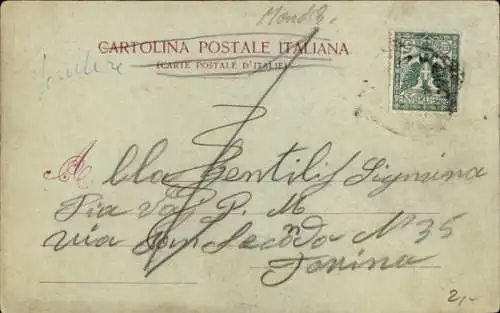 Mondo
CARTOLINA POSTALE ITALIANA
(CARTE POSTALE D'ITALIE)
Alla Gentilis Signorina
Pia P. M
via San Secondo Nº 35
Torino
2,-